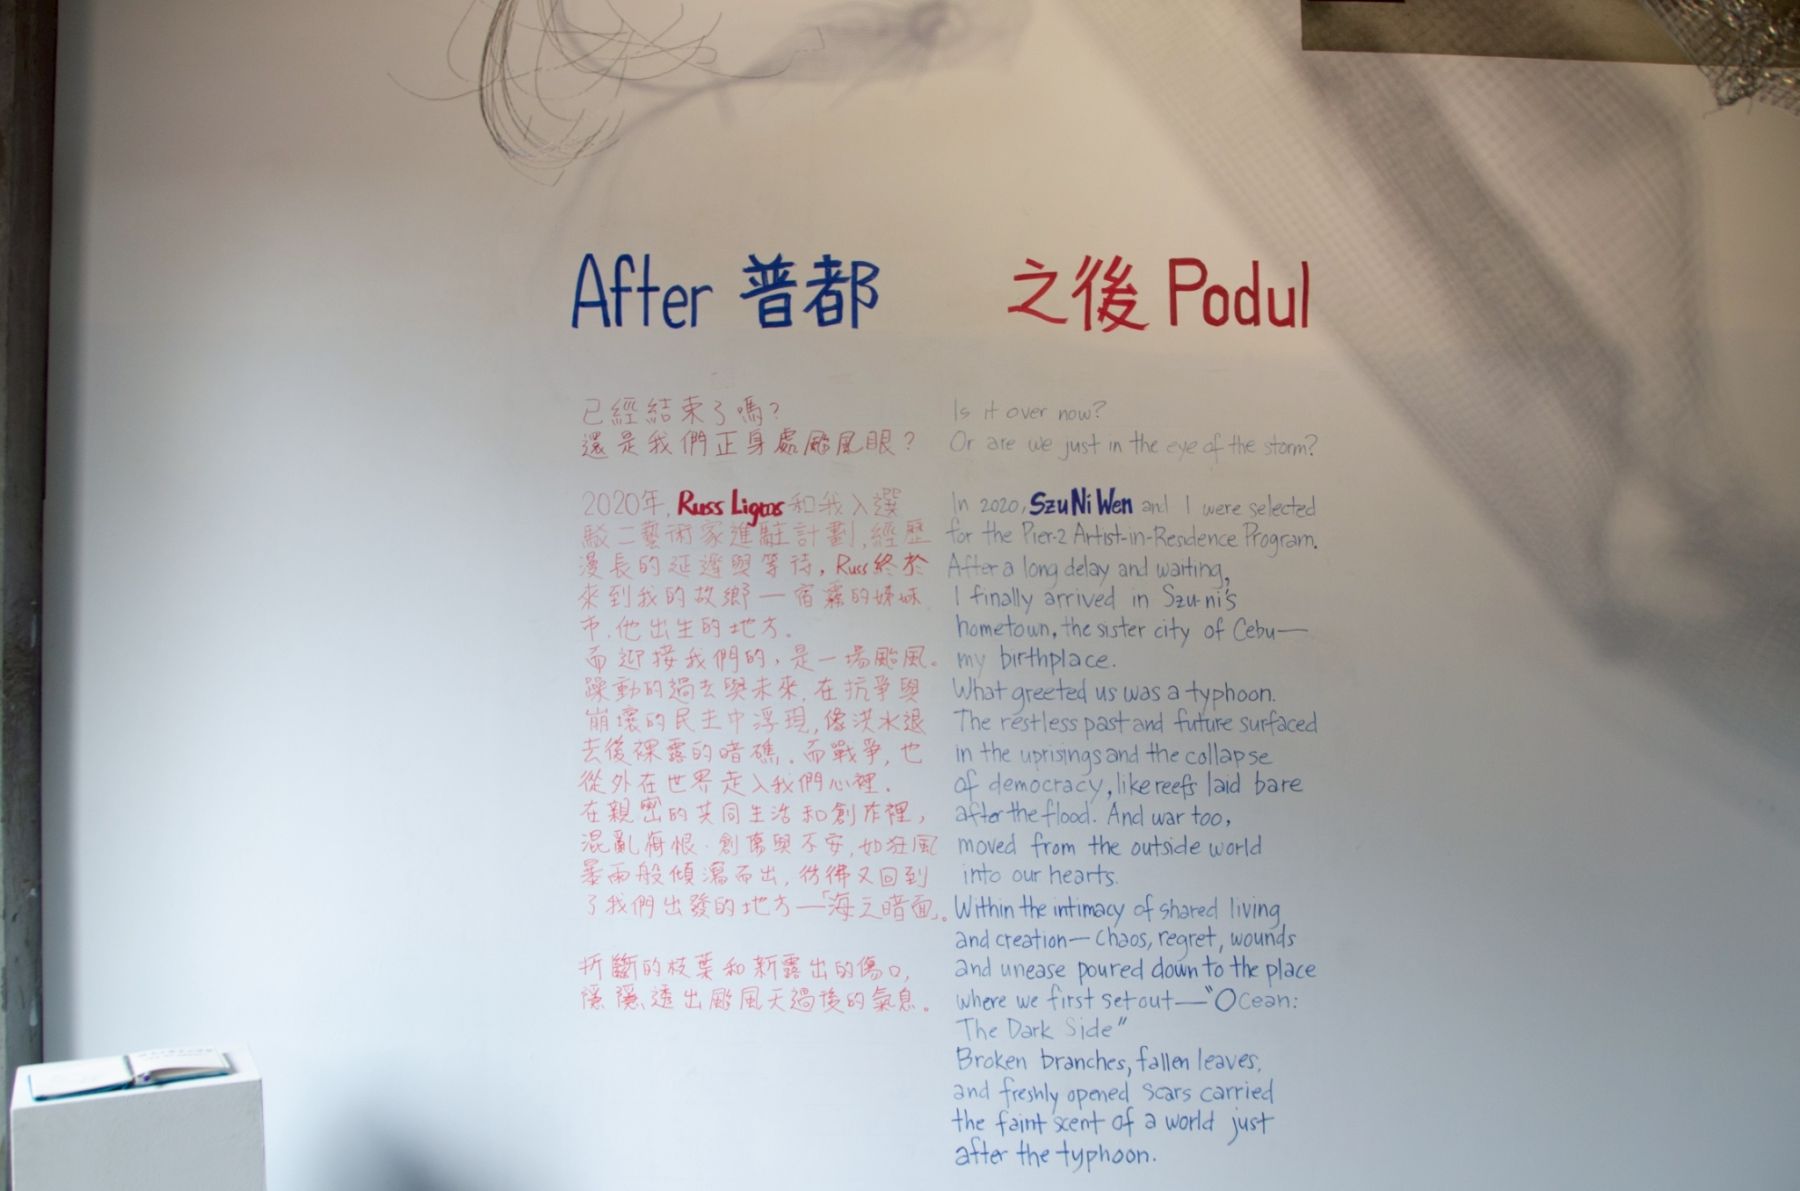 After 普都
之後 Podul
已經結束了嗎？
還是我們正身處颱風眼？
2020年, Russ Ligtas 和我入選
駁二藝術家進駐計劃, 經歷
漫長的延遲與等待, Russ終於
來到我的故鄉—宿霧的姊妹
市, 他出生的地方。
而迎接我們的, 是一場颱風。
躁動的過去與未來, 在抗爭與
崩壞的民主中浮現, 像洪水退
去後裸露的暗礁。而戰爭, 也
從外在世界走入我們心裡。
在親密的共同生活和創作裡,
混亂悔恨、創傷與不安, 如狂風
暴雨般傾瀉而出, 彷彿又回到
了我們出發的地方—「海之暗面」。
折斷的枝葉和新露出的傷口,
隱隱透出颱風天過後的氣息。
Is it over now?
Or are we just in the eye of the storm?
In 2020, Szu Ni Wen and I were selected
for the Pier-2 Artist-in-Residence Program.
After a long delay and waiting,
I finally arrived in Szu-ni's
hometown, the sister city of Cebu—
my birthplace.
What greeted us was a typhoon.
The restless past and future surfaced
in the uprisings and the collapse
of democracy, like reefs laid bare
after the flood. And war too,
moved from the outside world
into our hearts.
Within the intimacy of shared living
and creation— chaos, regret, wounds
and unease poured down to the place
where we first set out—"Ocean:
The Dark Side"
Broken branches, fallen leaves,
and freshly opened scars carried
the faint scent of a world just
after the typhoon.